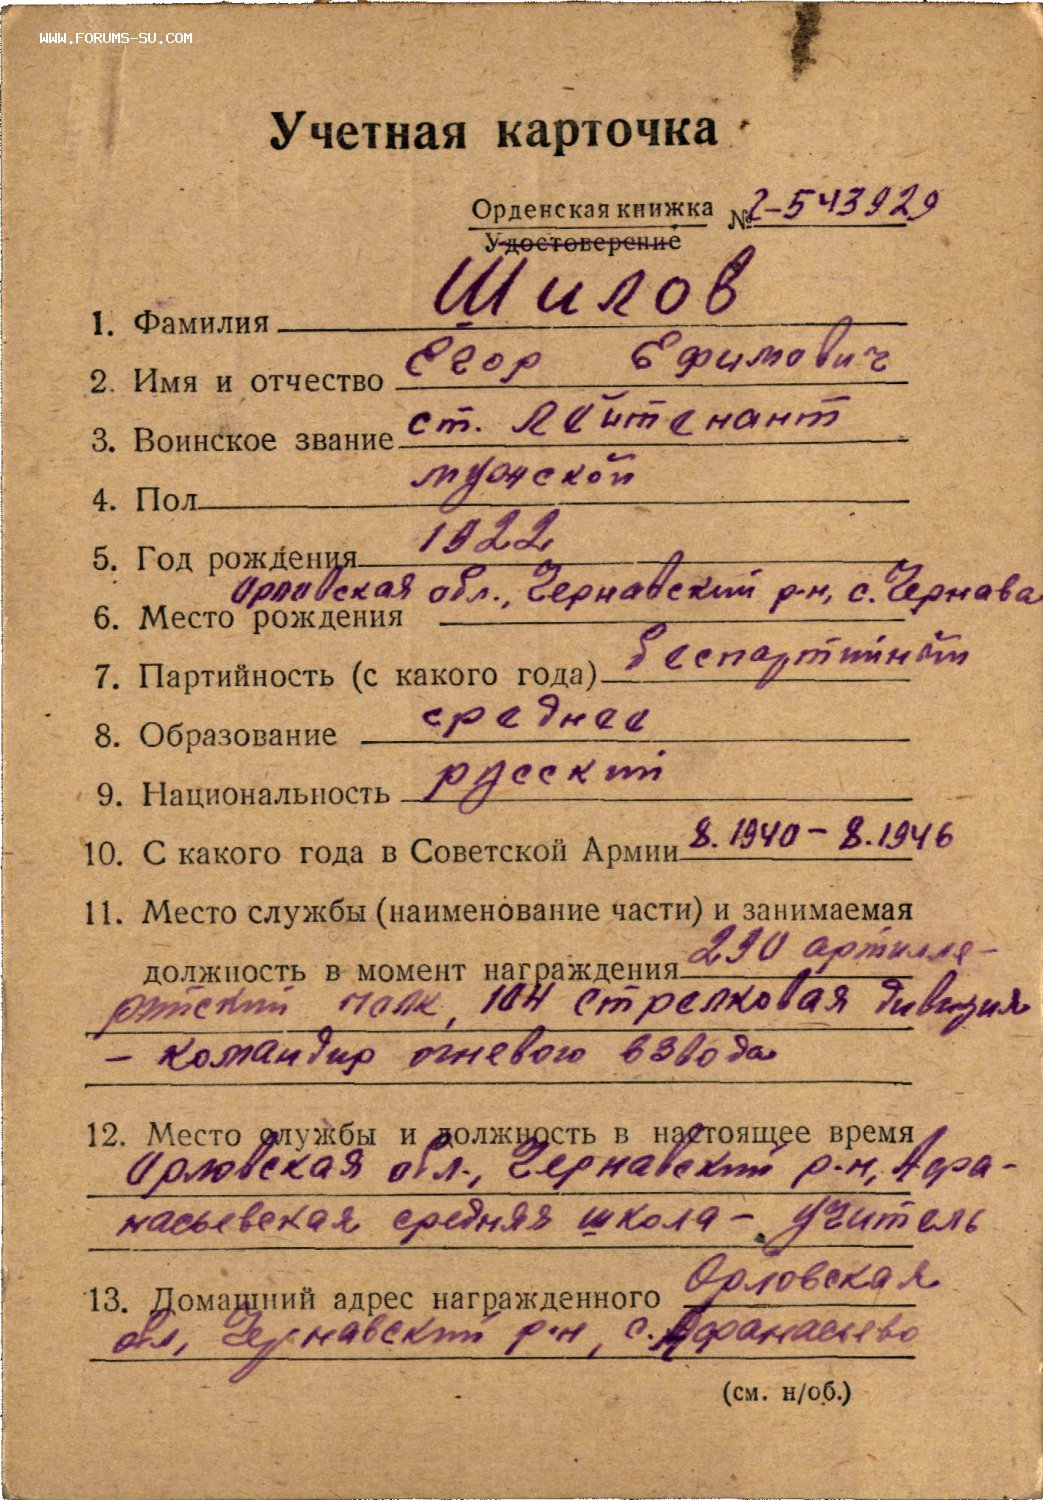 WWW.FORUMS-SU.COM
Учетная карточка
Орденская книжка № Г-543929
Удостоверение
1. Фамилия Шилов
2. Имя и отчество Егор Ефимович
3. Воинское звание ст. лейтенант
4. Пол мужской
5. Год рождения 1922
6. Место рождения Орловская обл., Чернавский р-н, с. Чернава
7. Партийность (с какого года) беспартийный
8. Образование среднее
9. Национальность русский
10. С какого года в Советской Армии 8.1940 – 8.1946
11. Место службы (наименование части) и занимаемая
должность в момент награждения 290 артилле-
рийский полк, 104 стрелковая дивизия
– командир огневого взвода
12. Место службы и должность в настоящее время
Орловская обл., Чернавский р-н, Афа-
насьевская средняя школа – учитель
13. Домашний адрес награжденного Орловская
обл, Чернавский р-н, с. Афанасьево
(см. н/об.)